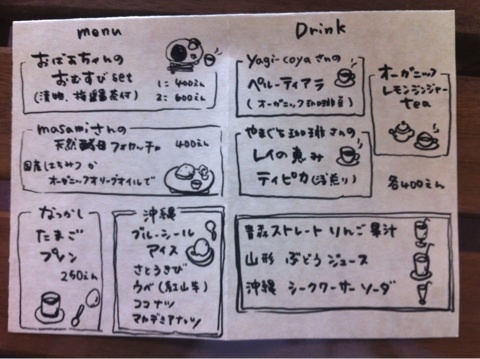 menu
おばあちゃんの
おむすび set
(漬物、梅番茶付)
1コ 400えん
2コ 600えん
masamiさんの
天然酵母フォカッチャ 400えん
国産はちみつ か
オーガニックオリーブオイルで
なつかし
たまご
プリン
250えん
沖縄
ブルーシール
アイス
さとうきび
ウベ(紅山芋)
ココナツ
マカデミアナッツ
Drink
Yagi-coyaさんの
ペルーティアラ
(オーガニック珈琲豆)
やまぐち珈琲さんの
レイの恵み
ティピカ(浅煎り)
オーガニック
レモンジンジャー
tea
各400えん
青森 ストレート りんご果汁
山形 ぶどう ジュース
沖縄 シークワーサー ソーダ